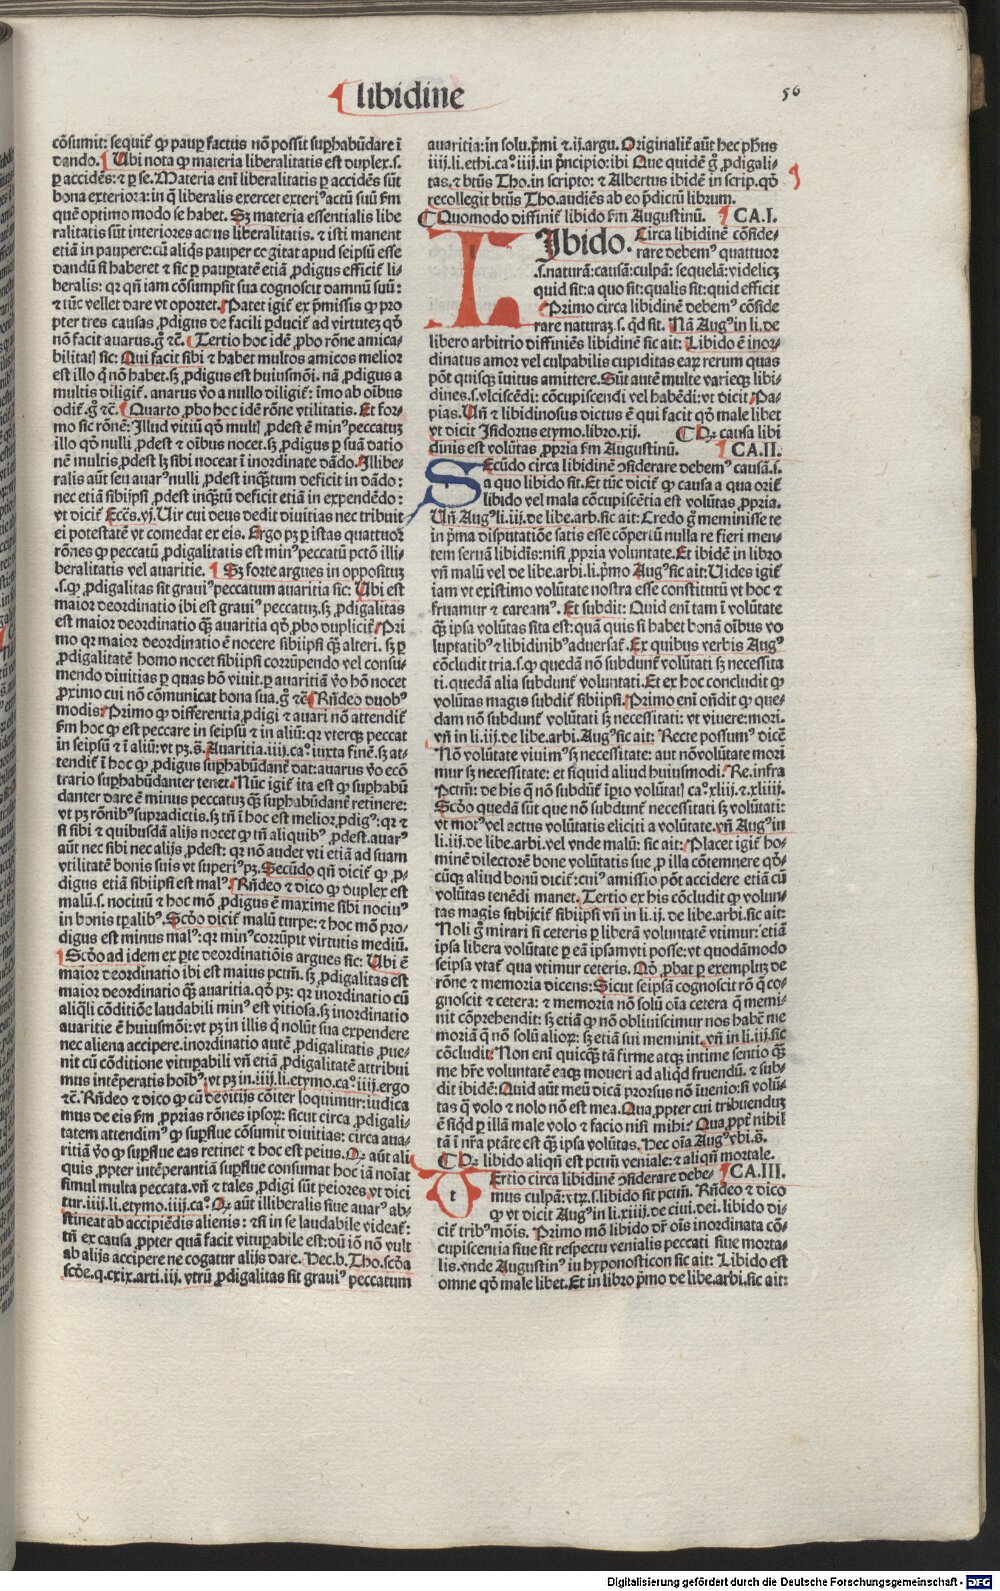 libidine
56
cōsumit: sequit᷑ ꝙ paup̱ factus nō possit suꝑhabūdare ī
dando. Ubi nota ꝙ materia liberalitatis est duplex.s.
ꝑ accidēs: ⁊ ꝑ se. Materia enī liberalitatis ꝑ accidēs sūt
bona exteriora: in q̄ liberalis exercet exteriꝰ actū suū ẜm
quē optimo modo se habet. Sꝫ materia essentialis libe
ralitatis sūt interiores actus liberalitatis. ⁊ isti manent
etiā in paupere: cū aliq̄s pauper cogitat apud seipsū esse
dandū si haberet ⁊ sic ꝑ pauꝑtatē etiā ꝓdigus efficit᷑ li-
beralis: qꝛ qn̄ iam cōsumpsit sua cognoscit damnū suū:
⁊ tūc vellet dare vt oportet. Patet igit᷑ ex p̄missis ꝙ pro
pter tres causas ꝓdigus de facili ꝑducit᷑ ad virtutez qd̄
nō facit auarus. g̊ ⁊c̄. Tertio hoc idē ꝓbo rōne amica-
bilitatꝭ sic: Qui facit sibi ⁊ habet multos amicos melior
est illo q̇ nō habet. sꝫ ꝓdigus est huiusmōi. nā ꝓdigus a
multis diligit᷑. anarus v̊o a nullo diligit᷑: imo ab oībus
odit᷑. g̊ ⁊c̄. Quarto ꝓbo hoc idē rōne vtilitatis. Et for-
mo sic rōnē: Illud vitiū qd̄ multꝭ ꝓdest ē minꝰ peccatuꝫ
illo qd̄ nulli ꝓdest ⁊ oībus nocet. sꝫ ꝓdigus ꝑ suā datio
nē multis ꝓdest lꝫ sibi noceat ī inordinate dādo. Illibe-
ralis aūt seu auarꝰ nulli ꝓdest inq̄tum deficit in dādo:
nec etiā sibiipsi ꝓdest inq̄tū deficit etiā in expendēdo:
vt dicit᷑ Eccēs.vj. Uir cui deus dedit diuitias nec tribuit
ei potestatē vt comedat ex eis. Ergo pꝫ ꝑ istas quattuor
rōnes ꝙ peccatū ꝓdigalitatis est minꝰ peccatū pctō illi-
beralitatis vel auaritie. Sꝫ forte argues in oppositūꝫ
.s.ꝙ ꝓdigalitas sit grauiꝰ peccatum auaritia sic: Ubi est
maior deordinatio ibi est grauiꝰ peccatuꝫ. sꝫ ꝓdigalitas
est maior deordinatio q̄ꝫ auaritia qd̄ ꝓbo duplicit᷑. Pri
mo qꝛ maior deordinatio ē nocere sibiipsi q̄ꝫ alteri. sꝫ ꝑ
ꝓdigalitatē homo nocet sibiipsi corrūpendo vel consu-
mendo diuitias ꝑ quas hō viuit. ꝑ auaritiā v̊o hō nocet
ꝓximo cui nō cōmunicat bona sua. g̊ ⁊c̄. Rn̄deo duobꝰ
modis. Primo ꝙ differentia ꝓdigi ⁊ auari nō attendit᷑
ẜm hoc ꝙ est peccare in seipsū ⁊ in aliū: qꝛ vterq̨ꝫ peccat
in seipsū ⁊ ī aliū: vt pꝫ.s̄. Auaritia.iij.ca.º iuxta finē. sꝫ at-
tendit᷑ ī hoc ꝙ ꝓdigus suꝑhabūdant᷑ dat: auarus v̊o ecō
trario suꝑhabūdanter tenet. Nūc igit᷑ ita est ꝙ suꝑhabū
danter dare ē minus peccatuꝫ q̄ꝫ suꝑhabūdant᷑ retinere:
vt pꝫ rōnibꝰ supradictis. sꝫ tn̄ ī hoc est melior ꝓdigꝰ: qꝛ ⁊
si sibi ⁊ quibusdā alijs nocet ꝙ tn̄ aliquibꝰ ꝓdest. auarꝰ
aūt nec sibi nec alijs ꝓdest: qꝛ nō audet vti etiā ad suam
vtilitatē bonis suis vt superiꝰ pꝫ. Secūdo qn̄ dicit᷑ ꝙ ꝓ-
digus etiā sibiipsi est malꝰ. Rn̄deo ⁊ dico ꝙ duplex est
malū.s. nociuū ⁊ hoc mō ꝓdigus ē maxime sibi nociuꝰ
in bonis tꝑalibꝰ. Scd̄o dicit᷑ malū turpe: ⁊ hoc mō pro-
digus est minus malꝰ: qꝛ minꝰ corrūpit virtutis mediū.
Scd̄o ad idem ex ꝑte deordinatiōis argues sic: Ubi ē
maior deordinatio ibi est maius pctm̄. sꝫ ꝓdigalitas est
maior deordinatio q̄ꝫ auaritia. qd̄ pꝫ: qꝛ inordinatio cū
aliq̄li cōditiōe laudabili minꝰ est vitiosa. sꝫ inordinatio
auaritie ē huiusmōi: vt pꝫ in illis q̇ nolūt sua expendere
nec aliena accipere. inordinatio autē ꝓdigalitatis ꝓue-
nit cū cōditione vituꝑabili vn̄ etiā ꝓdigalitatē attribui
mus intēperatis hoīb: vt pꝫ in.iiij.li.etymo.ca.º iiij. ergo
⁊c̄. Rn̄deo ⁊ dico ꝙ cū de vitijs cōiter loquimur: iudica
mus de eis ẜm ꝓprias rōnes ipsoꝝ: sicut circa ꝓdigali-
tatem attendimꝰ ꝙ suꝑflue cōsumit diuitias: circa aua-
ritiā v̊o ꝙ suꝑflue eas retinet ⁊ hoc est peius. Qꝛ aūt ali
quis ꝓpter intēperantiā suꝑflue consumat hoc iā noīat
simul multa peccata. vn̄ ⁊ tales ꝓdigi sūt peiores vt dici
tur.iiij.li.etymo.iiij.ca.º Qꝛ aūt illiberalis siue auarꝰ ab-
stineat ab accipiēdis alienis: ⁊ si in se laudabile videat᷑:
tn̄ ex causa ꝓpter quā facit vituꝑabile est: dū iō nō vult
ab alijs accipere ne cogatur alijs dare. Hec.b. Tho.scd̄a
scd̄e.q.cxix.arti.iij. vtrū ꝓdigalitas sit grauiꝰ peccatum
auaritia: in solu. p̄mi ⁊.ij.argu. Originalit᷑ aūt hec ph̄us
iiij.li.ethi.ca.º iiij.in p̄ncipio: ibi Que quidē g̊ ꝓdigali-
tas. ⁊ btūs Tho.in scripto: ⁊ Albertus ibidē in scrip. qd̄
recollegit btūs Tho.audiēs ab eo p̄dictū librum.
Quomodo diffinit᷑ libido ẜm Augustinū. CA.I.
LIbido. Circa libidinē cōside-
rare debemꝰ quattuor
.s.naturā: causā: culpā: sequelā: videlicꝫ
quid sit: a quo sit: qualis sit: quid efficit
Primo circa libidinē debemꝰ cōside
rare naturaꝫ.s. qd̄ sit. Nā Augꝰ in li.de
libero arbitrio diffiniēs libidinē sic ait: Libido ē inor-
dinatus amor vel culpabilis cupiditas eaꝝ rerum quas
pōt quisq̨ꝫ īuitus amittere. Sūt autē multe varieq̨ꝫ libi-
dines.s.vlciscēdi: cōcupiscendi vel habēdi: vt dicit Pa-
pias. Vn̄ ⁊ libidinosus dictus ē qui facit qd̄ male libet
vt dicit Isidorus etymo.libro.xij. Qꝛ causa libi
dinis est volūtas ꝓpria ẜm Augustinū. CA.II.
SEcūdo circa libidinē ↄsiderare debemꝰ causā.s.
a quo libido sit. Et tūc dicit᷑ ꝙ causa a qua orit᷑
libido vel mala cōcupiscētia est volūtas ꝓpria.
Vn̄ Augꝰ li.iij.de libe.arb.sic ait: Credo g̊ meminisse te
in p̄ma disputatiōe satis esse cōpertū nulla re fieri men-
tem seruā libidīs: nisi ꝓpria voluntate. Et ibidē in libro
vn̄ malū vel de libe.arbi.li.p̄mo Augꝰ sic ait: Uides igit᷑
iam vt existimo volūtate nostra esse constitutū vt hoc ⁊
fruamur ⁊ careamꝰ. Et subdit: Quid enī tam ī volūtate
q̄ꝫ ipsa volūtas sita est: quā quis si habet bonā oībus vo
luptatibꝰ ⁊ libidinibꝰ aduersat᷑. Ex quibus verbis Augꝰ
cōcludit tria.s.ꝙ quedā nō subdunt᷑ volūtati sꝫ necessita
ti. quedā alia subdunt᷑ voluntati. Et ex hoc concludit ꝙ
volūtas magis subdit᷑ sibiipsi. Primo enī on̄dit ꝙ que-
dam nō subdunt᷑ volūtati sꝫ necessitati: vt viuere: mori.
vn̄ in li.iij.de libe.arbi.Augꝰ sic ait: Recte possumꝰ dicē
Nō volūtate viuimꝰ sꝫ necessitate: aut nō volūtate mori
mur sꝫ necessitate: et siquid aliud huiusmodi. Re.infra
Pctm̄: de his q̄ nō subdūt᷑ īꝑio volūtatꝭ ca.º xliij.⁊.xliiij.
Scd̄o quedā sūt que nō subdunt᷑ necessitati sꝫ volūtati:
vt motꝰ vel actus volūtatis eliciti a volūtate. vn̄ Augꝰ in
li.iij.de libe.arbi.vel vnde malū: sic ait: Placet igit᷑ ho-
minē dilectorē bone volūtatis sue ꝓ illa cōtemnere qd̄-
cūq̨ꝫ aliud bonū dicit᷑: cuiꝰ amissio pōt accidere etiā cū
volūtas tenēdi manet. Tertio ex his cōcludit ꝙ volun-
tas magis subijcit᷑ sibiipsi vn̄ in li.ij.de libe.arbi.sic ait:
Noli g̊ mirari si ceteris ꝑ liberā voluntatē vtimur: etiā
ipsa libera volūtate ꝑ eā ipsam vti posse: vt quodāmodo
seipsa vtat᷑ qua vtimur ceteris. Qd̄ ꝓbat ꝑ exempluꝫ de
rōne ⁊ memoria dicens: Sicut seipsā cognoscit rō q̄ co-
gnoscit ⁊ cetera: ⁊ memoria nō solū oīa cetera q̄ memi-
nit cōprehendit: sꝫ etiā ꝙ nō obliuiscimur nos habē me
moriā q̄ nō solū alioꝝ: sꝫ etiā sui meminit. vn̄ in li.iij.sic
cōcludit: Non enī quicq̄ꝫ tā firme atq̨ꝫ intime sentio q̄ꝫ
me hr̄e voluntatē eaq̨ꝫ moueri ad aliqd̄ fruendū. ⁊ sub-
dit ibidē: Quid aūt meū dicā prorsus nō īuenio: si volū-
tas q̄ volo ⁊ nolo nō est mea. Qua ꝓpter cui tribuenduꝫ
ē siqd̄ ꝑ illā male volo ⁊ facio nisi mihi? Qua ꝓpt᷑ nihil
tā ī nr̄a ptāte est q̄ꝫ ipsa volūtas. Hec oīa Augꝰ vbi.s̄.
Qꝛ libido aliqn̄ est pctm̄ veniale: ⁊ aliqn̄ mortale.
tErtio circa libidinē ↄsiderare debe- CA.III.
mus culpā: vtꝝ.s.libido sit pctm̄. Rn̄deo ⁊ dico
ꝙ vt dicit Augꝰ in li.xiiij.de ciui.dei.libido di-
cit᷑ tribꝰ mōis. Primo mō libido dr̄ oīs inordinata cō-
cupiscentia siue sit respectu venialis peccati siue morta-
lis. vnde Augustinꝰ iu hyponosticon sic ait: Libido est
omne qd̄ male libet. Et in libro p̄mo de libe.arbi.sic ait:
Digitalisierung gefördert durch die Deutsche Forschungsgemeinschaft - DFG